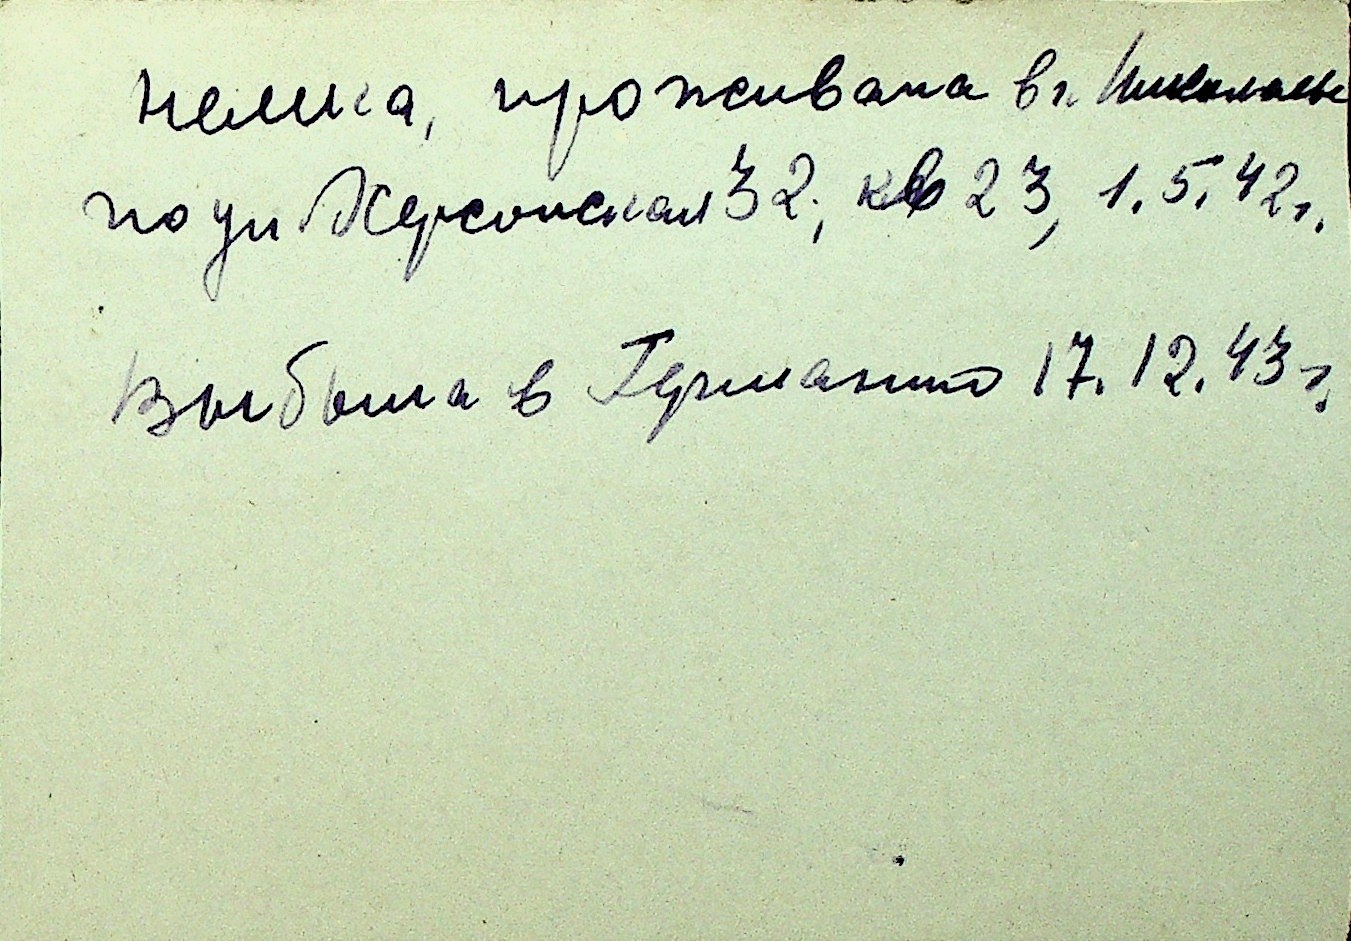 немка, проживала в г. Николаеве
по ул Херсонская 32, кв 23, 1.5.42г.
Выбыла в Германию 17.12.43г.